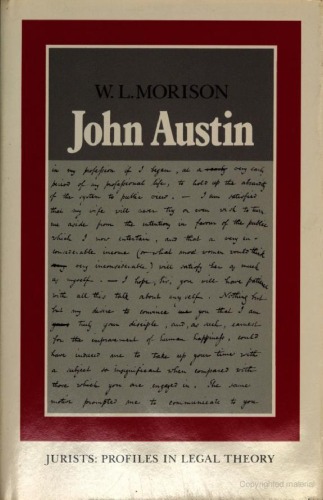 W. L. MORISON
John Austin
in my profession if I began, at a very early
period of my professional life, to hold up the absurdity
of the system to public view. — I am satisfied
that my wife will never try or even wish to turn
me aside from the intention in favour of the public
which I now entertain, and that a very in-
considerable income (or what most women would think
very inconsiderable) will satisfy her as much
as myself. — I hope, Sir, you will have patience
with all this talk about myself. Nothing but
but my desire to convince you that I am
truly your disciple, and, as such, earnest
for the improvement of human happiness, could
have induced me to take up your time with
a subject so insignificant when compared with
those which you are engaged in. The same
motive prompted me to communicate to you
JURISTS: PROFILES IN LEGAL THEORY
Copyrighted material